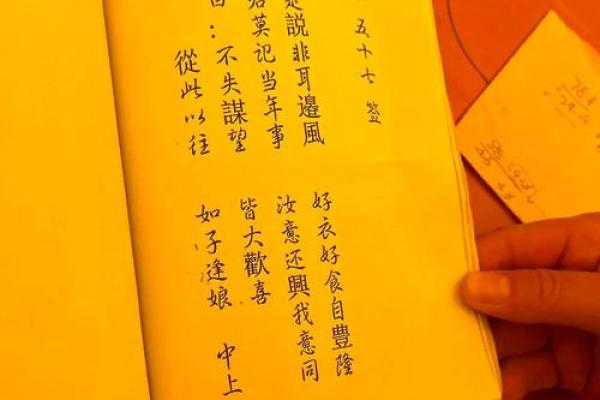 五十七 签
說非耳邊風 好衣好食自豐隆
莫记当年事 汝意还興我意同
：不失謀望 皆大歡喜
從此以往 如子逢娘 中上